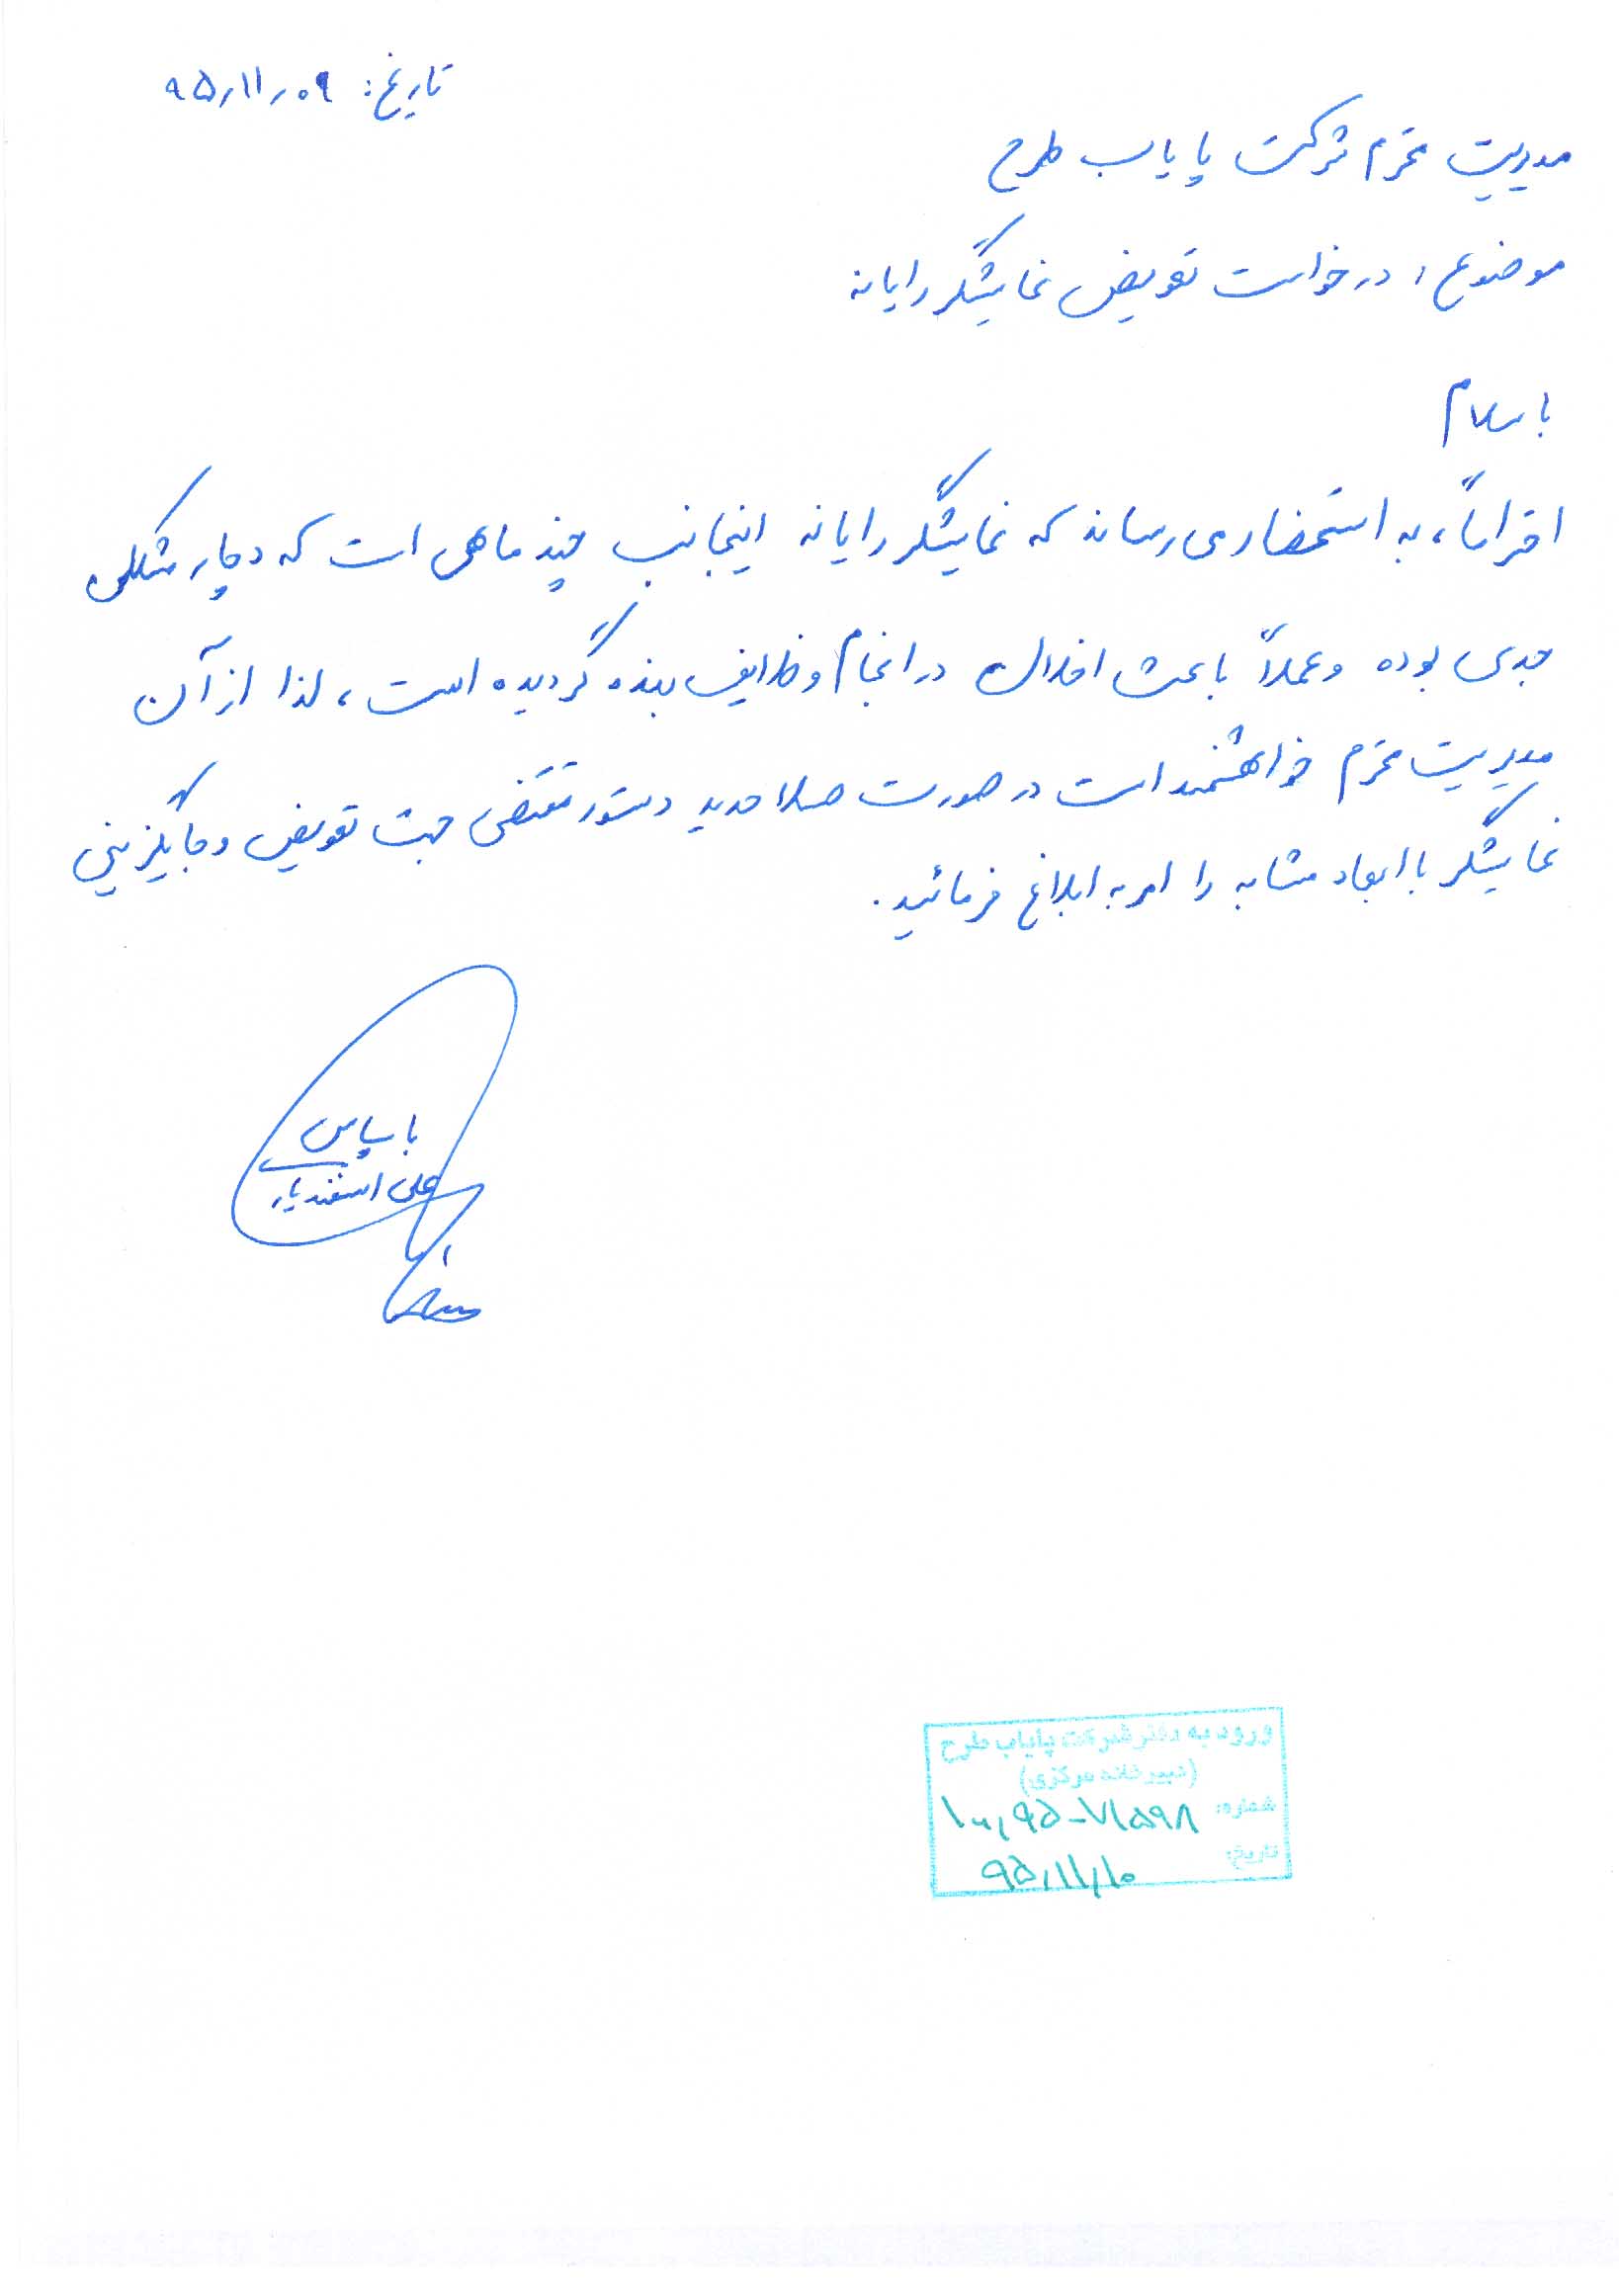 تاریخ: ۹۵/۱۱/۰۹
مدیریت محترم شرکت پایاب طرح
موضوع: درخواست تعویض نمایشگر رایانه
با سلام
احتراماً، به استحضار می‌رساند که نمایشگر رایانه اینجانب چند ماهی است که دچار مشکلی
جدی بوده و عملاً باعث اخلال در انجام وظایف بنده گردیده است، لذا از آن
مدیریت محترم خواهشمند است در صورت صلاحدید دستور مقتضی جهت تعویض و جایگزینی
نمایشگر با ابعاد مشابه را امر به ابلاغ فرمائید.
با سپاس
علی اسفندیار
ورود به دفتر شرکت پایاب طرح
(دبیرخانه مرکزی)
شماره: ۹۵-۷۱۵۹۸
تاریخ: ۹۵/۱۱/۱۰